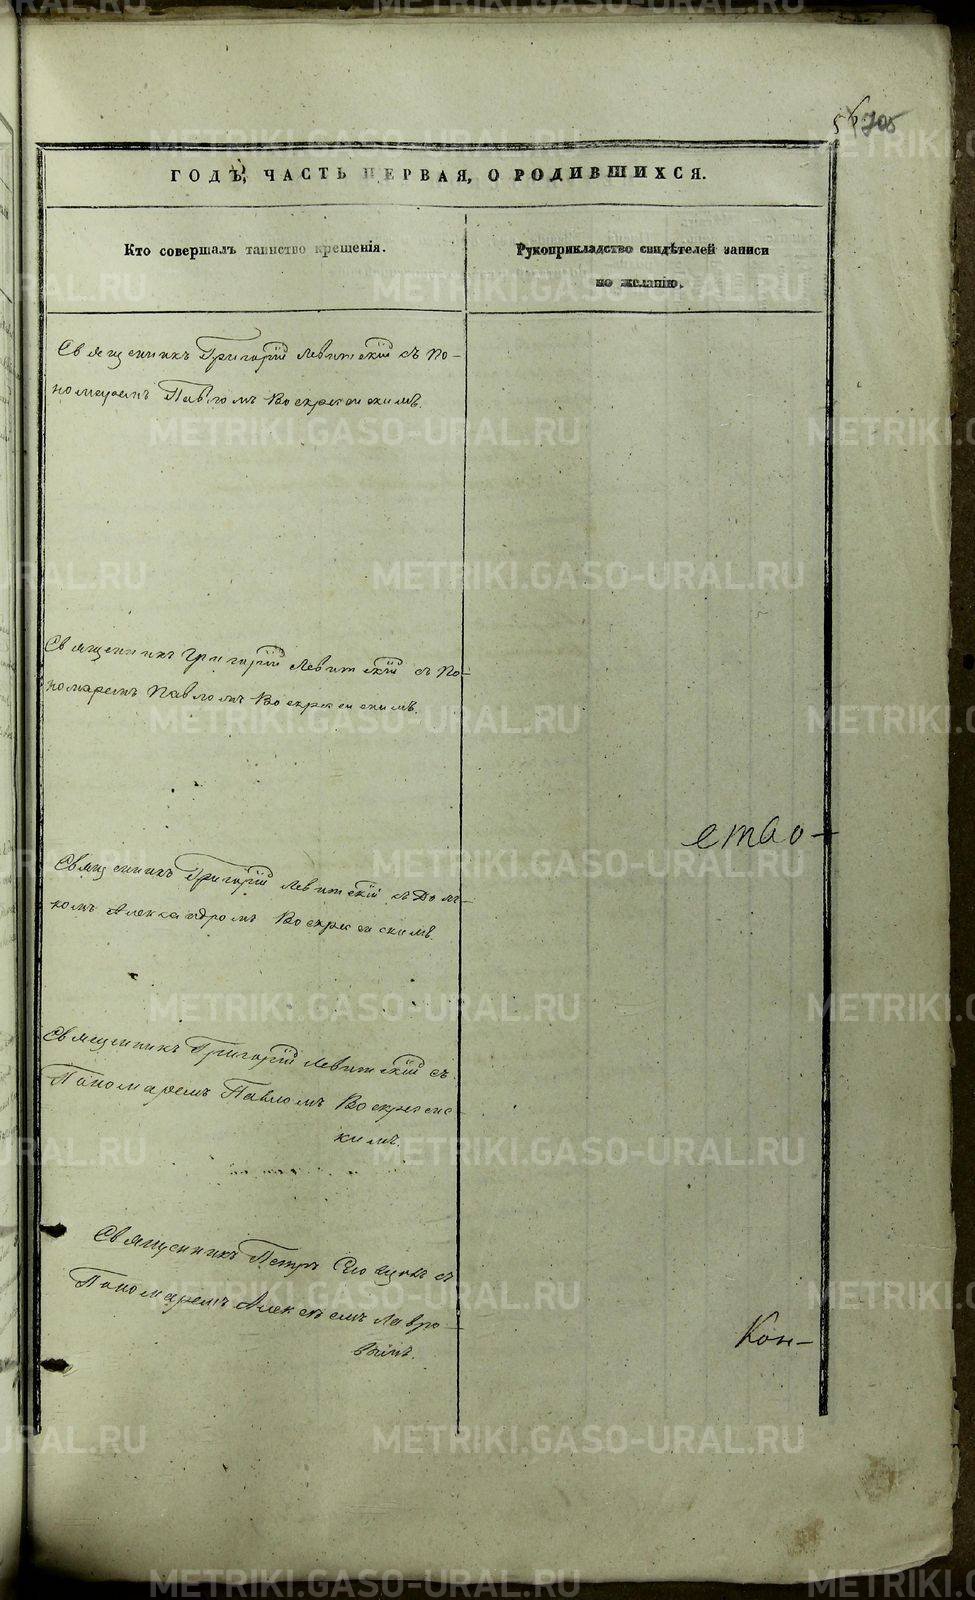 705
ГОДѢ, ЧАСТЬ ПЕРВАЯ, О РОДИВШИХСЯ.
Кто совершалъ таинство крещенія.
Рукоприкладство свидѣтелей записи
по желанію.
Священникъ Григорій Левитскій съ По-
номаремъ Павломъ Воскресенскимъ.
Священникъ Григорій Левитскій съ По-
номаремъ Павломъ Воскресенскимъ.
ство-
Священникъ Григорій Левитскій съ Дья-
комъ Александромъ Воскресенскимъ.
Священникъ Григорій Левитскій съ
Пономаремъ Павломъ Воскресенс-
кимъ.
Священникъ Петръ съ
Пономаремъ Алексѣемъ Лавро-
вымъ.
Кон-
METRIKI.GASO-URAL.RU